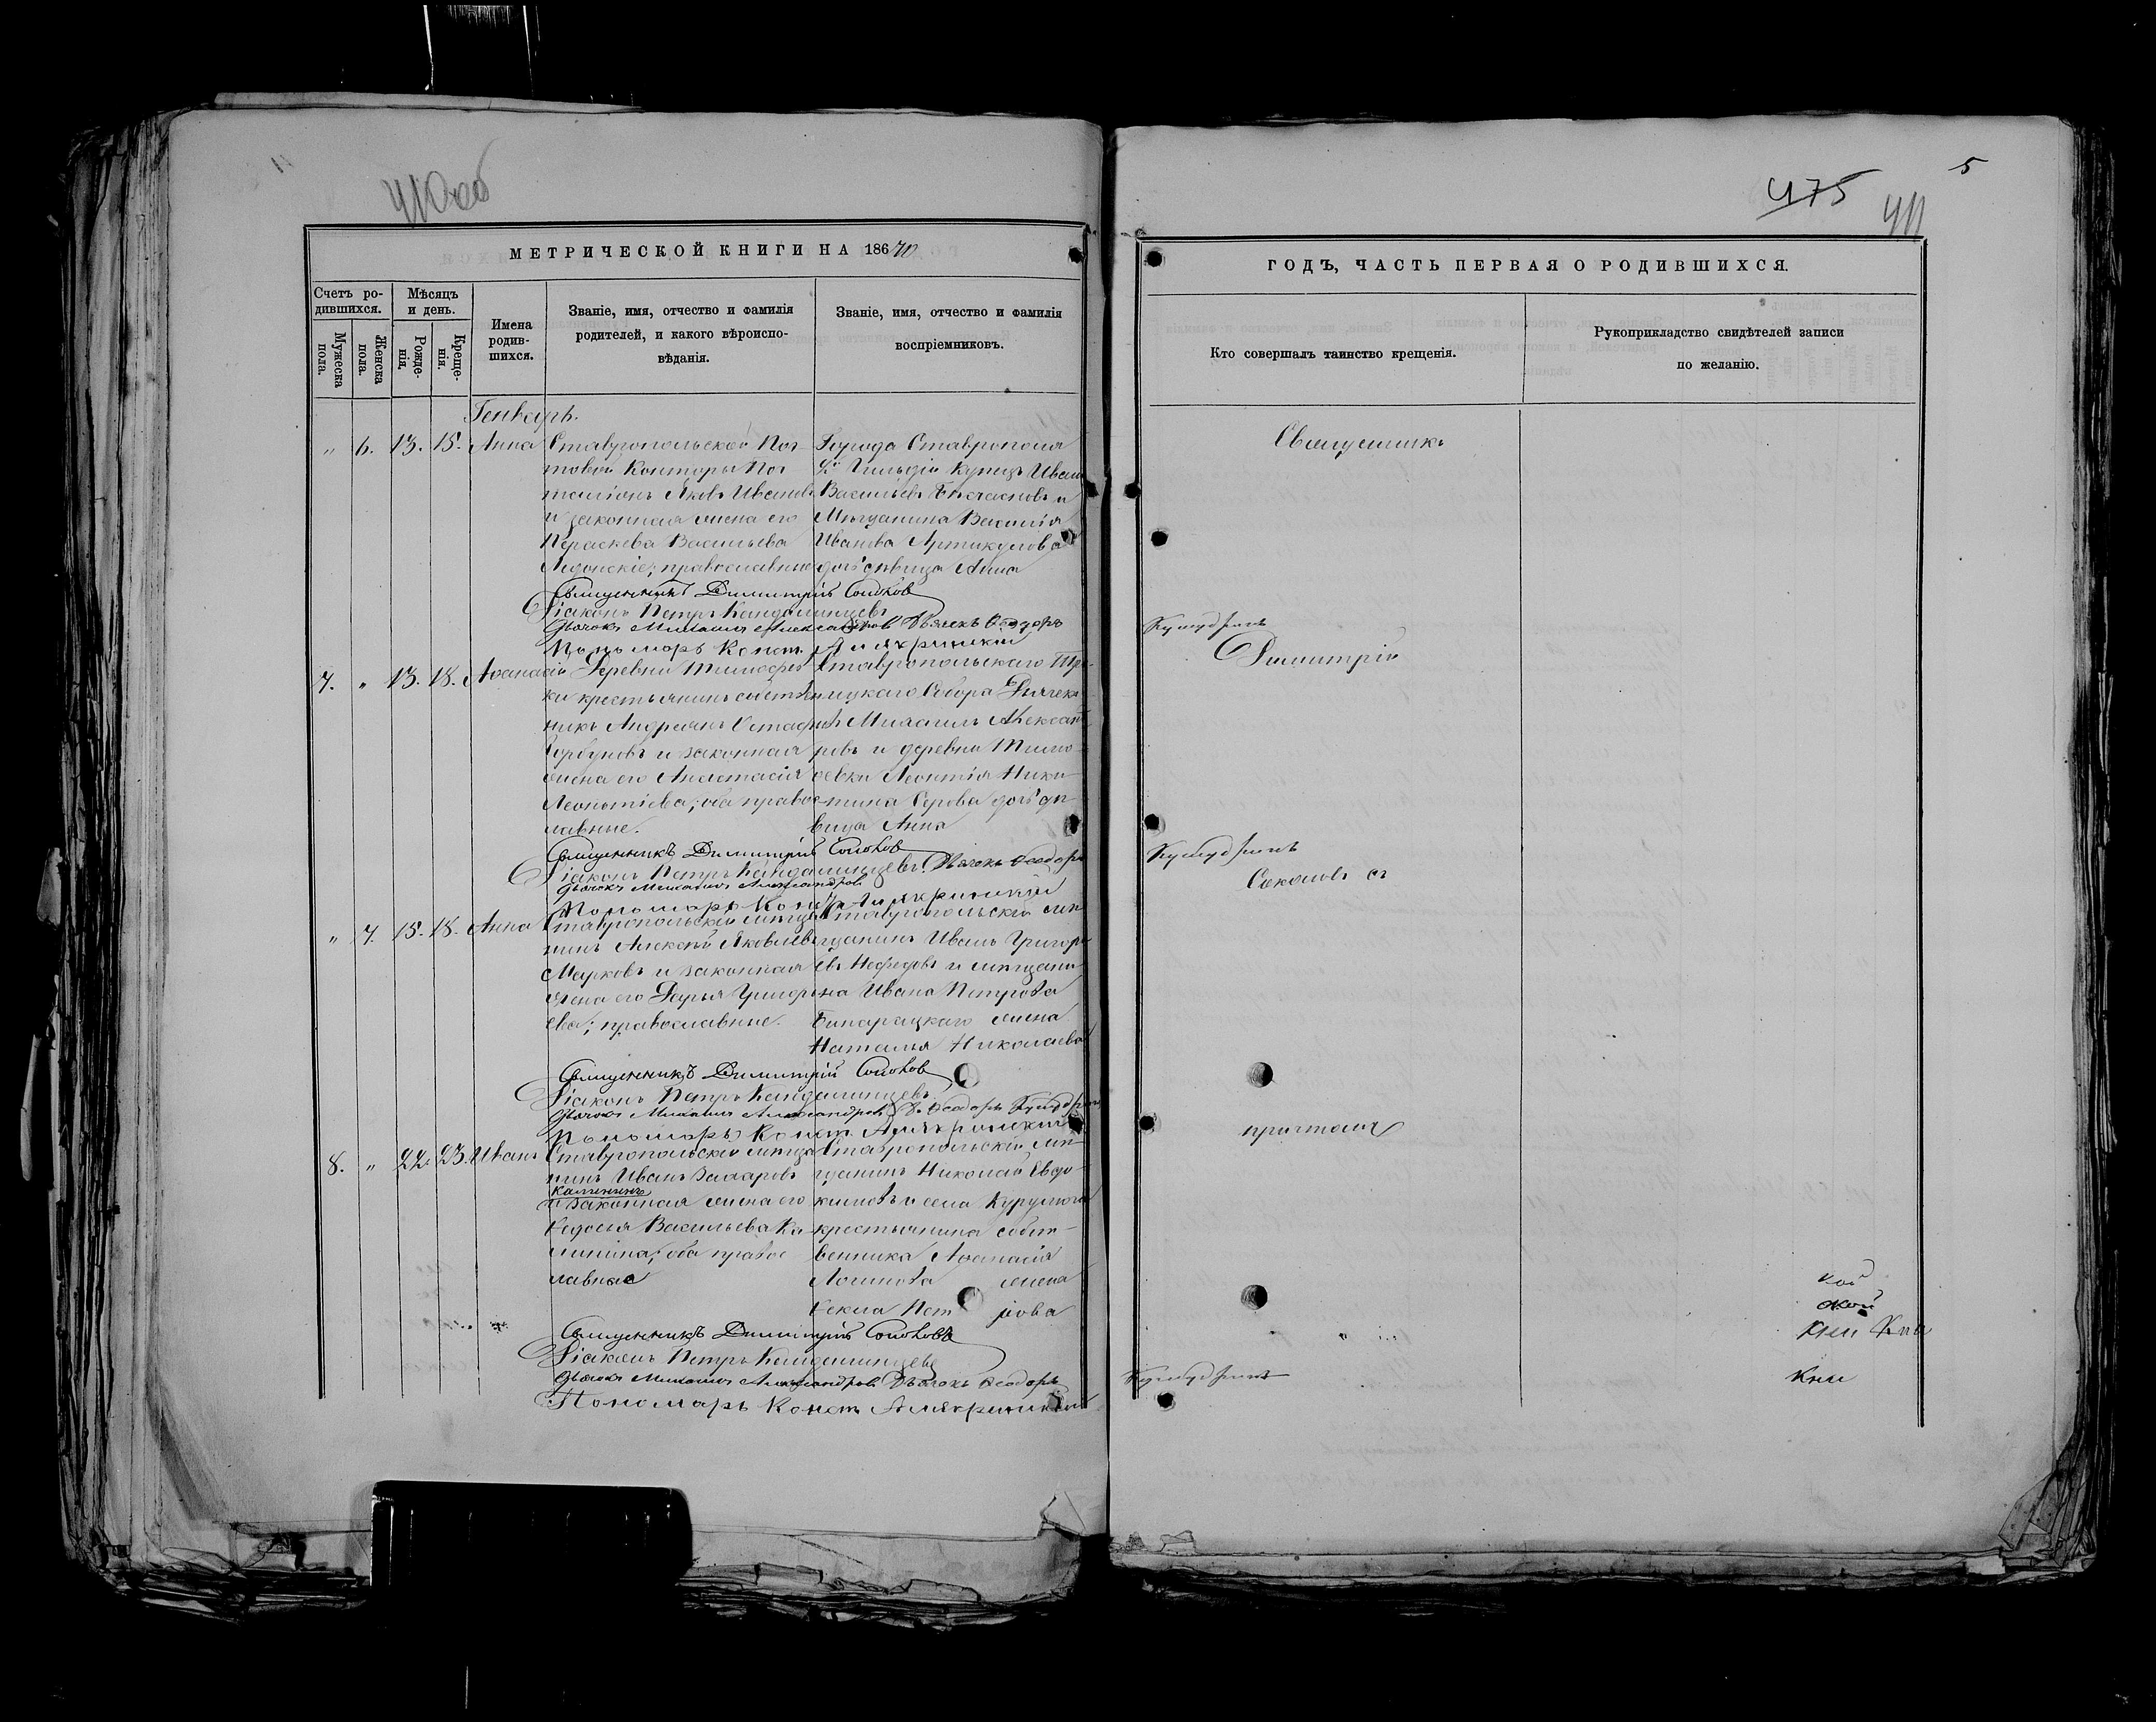 410 об
МЕТРИЧЕСКОЙ КНИГИ НА 1870
Счетъ ро-
дившихся.
Мужеска
пола.
Женска
пола.
Мѣсяцъ
и день.
Рожде-
нія.
Креще-
нія.
Имена
родив-
шихся.
Званіе, имя, отчество и фамилія
родителей, и какого вѣроиспо-
вѣданія.
Званіе, имя, отчество и фамилія
воспріемниковъ.
Генварь.
" 6. 13. 15. Анна
Ставропольской Поч-
товой Конторы Поч
таліонъ Яковъ Ивановъ
и законная жена его
Параскева Васильева
православные
Города Ставрополя
Гильдіи Купецъ Иванъ
Васильевъ и
Мѣщанина Василія
Иванова Артикулова
дочь дѣвица Анна
Священникъ Димитрій Соколов
Діаконъ Петръ
Дьячокъ Михаилъ Александров Дьячекъ Ѳеодоръ
Пономарь Конст.
7. " 13. 18. Аѳанасій
Деревни Тимофеев
ки крестьянинъ собствен
никъ Андреянъ Остафьев
Горбуновъ и законная
жена его Анастасія
Леонтіева; оба правос
лавные.
Ставропольскаго Тро-
ицкаго Собора Дьячекъ
Михаилъ Александ
ровъ и деревни Тимо-
Леонтія Ники-
тина Серова дочь дѣ-
вица Анна
Священникъ Димитрій Соколов
Діаконъ Петръ Дьячокъ Ѳеодоръ
Дьячокъ Михаилъ Александров
Пономарь Конст.
" 7. 15. 18. Анна
Ставропольскій мѣща
нинъ Алексѣй Яковлевъ
Марковъ и законная
жена его Дарья Григорь
ева; православные.
Ставропольскій мѣ-
щанинъ Иванъ Григорь
евъ Нефедовъ и мѣщани-
на Ивана Петрова
жена
Наталья Николаева
Священникъ Димитрій Соколов
Діаконъ Петръ
Дьячокъ Михаилъ Александров Д. Ѳеодоръ
Пономарь Конст.
8. " 22. 23. Иванъ
Ставропольскій мѣща
нинъ Иванъ Захаровъ
Калининъ
и законная жена его
Ѳедосья Васильева Ка-
линина; оба правос
лавные
Ставропольскій мѣ-
щанинъ Николай Евдо-
кимовъ и села
крестьянина собст-
венника Аѳанасія
Логинова жена
Ѳекла Петрова
Священникъ Димитрій Соколовъ
Діаконъ Петръ
Дьячокъ Михаилъ Александров Дьячокъ Ѳеодоръ
Пономарь Конст
5
475
411
ГОДЪ, ЧАСТЬ ПЕРВАЯ О РОДИВШИХСЯ.
Кто совершалъ таинство крещенія.
Рукоприкладство свидѣтелей записи
по желанію.
Священникъ
Димитрій
Соколовъ съ
причтомъ